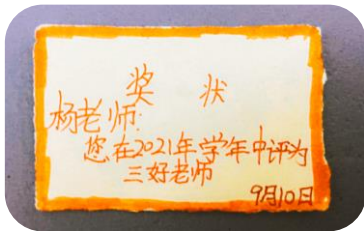 奖状
杨老师:
您在2021年学年中评为
三好老师
9月10日